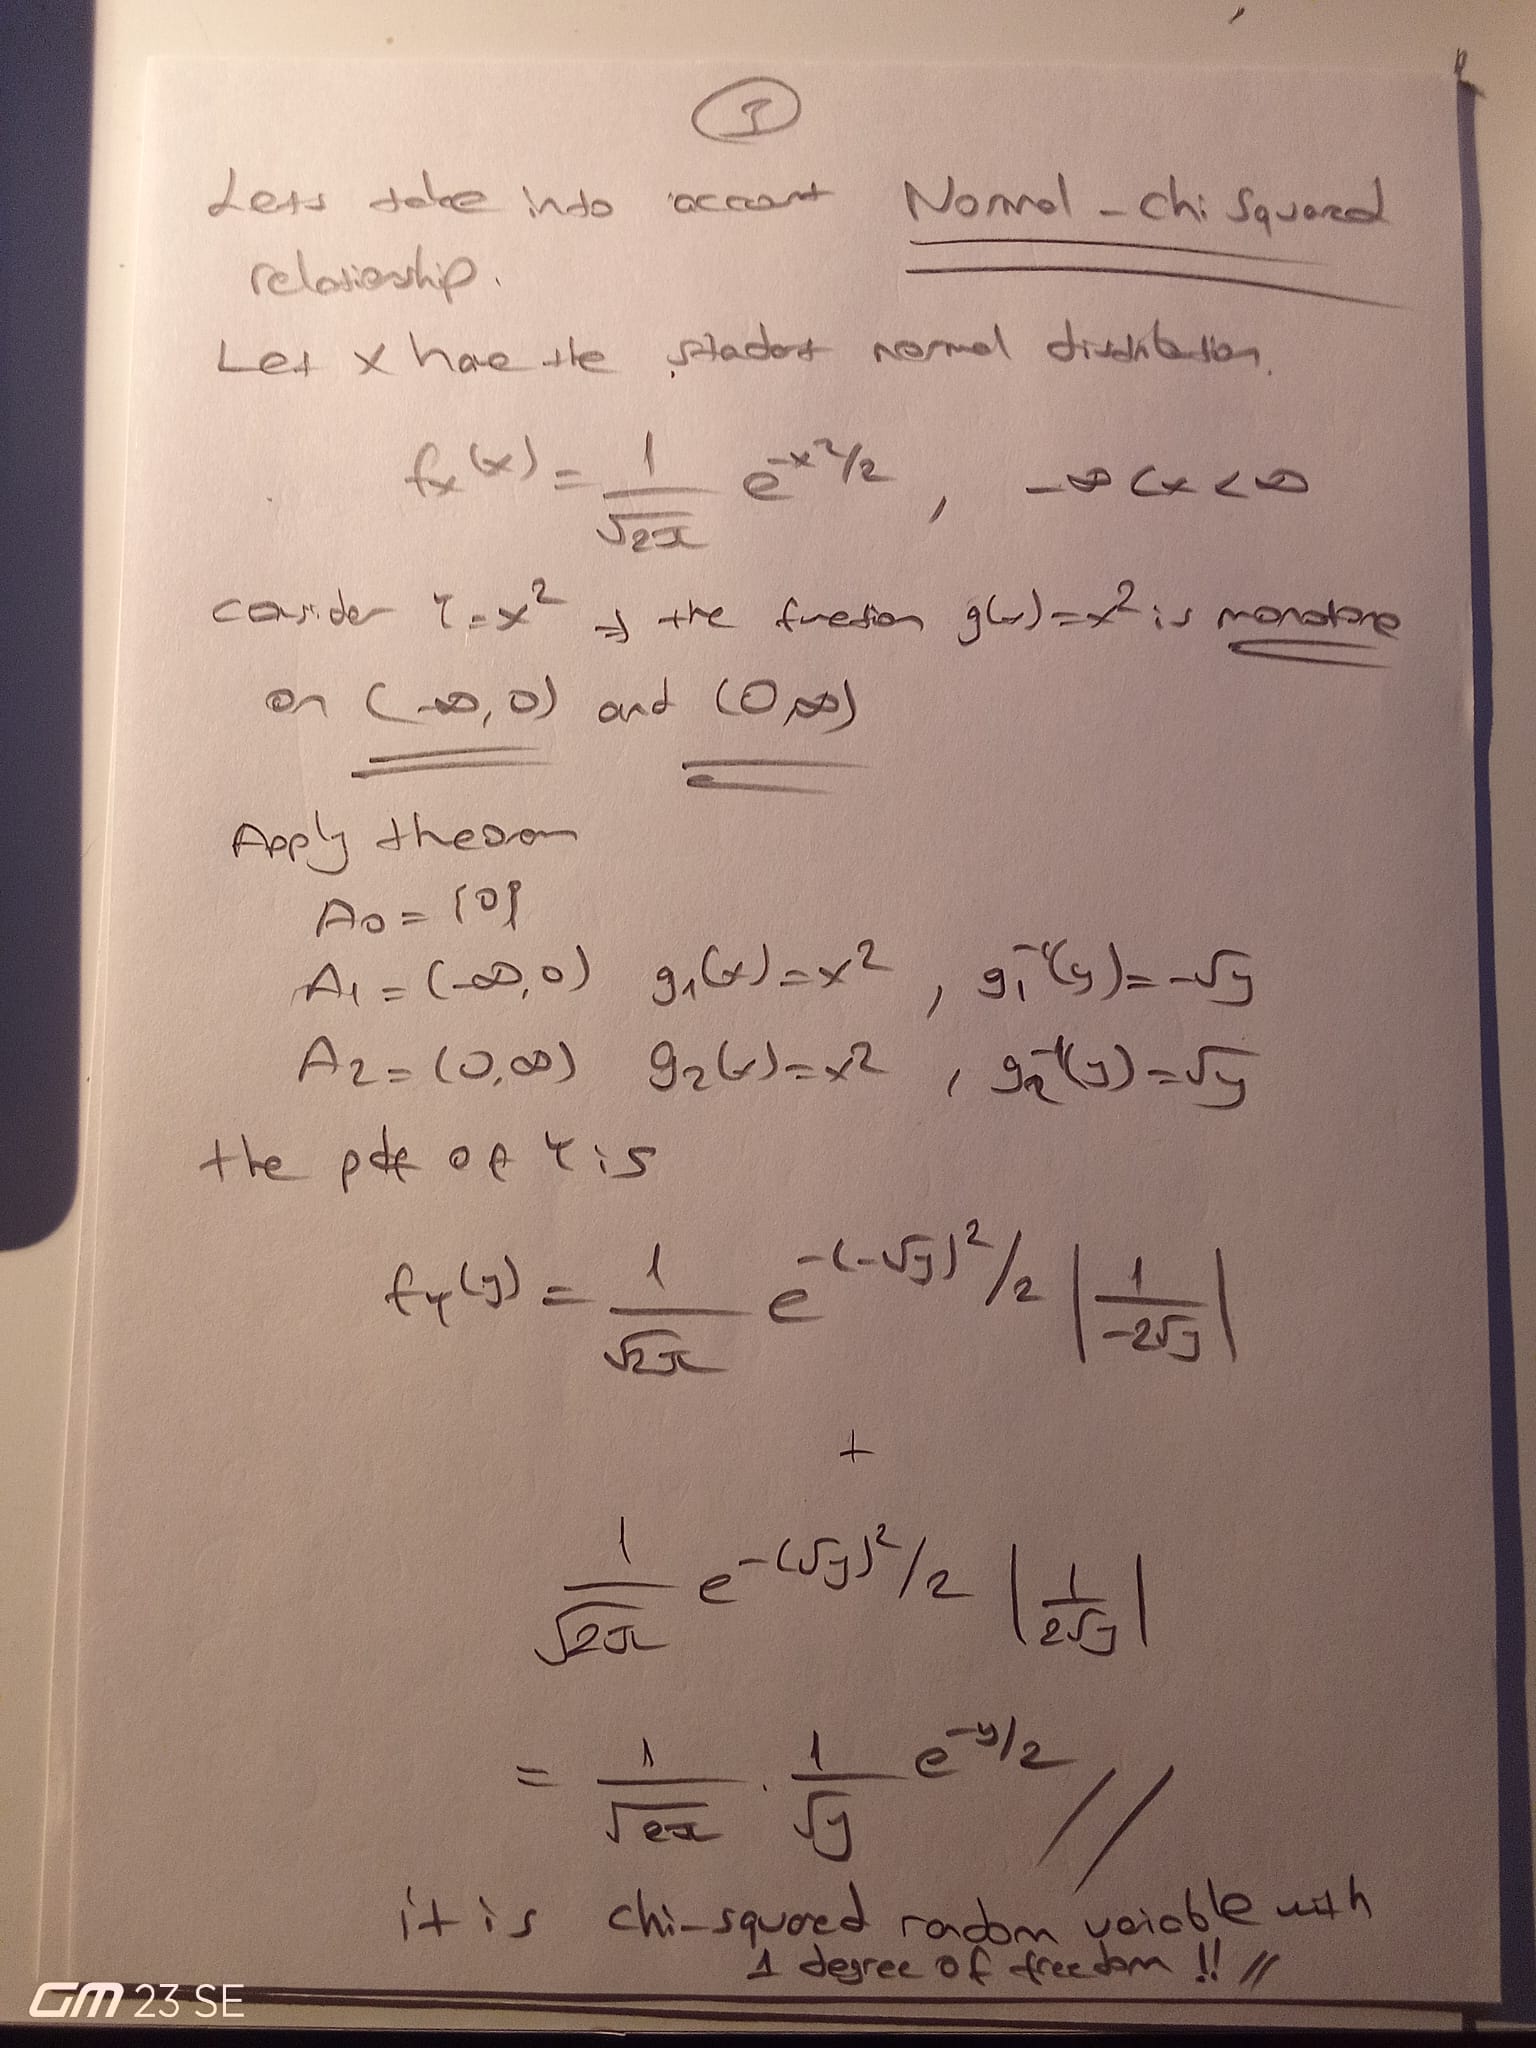 3
Lets take into account Normal - chi squared
relationship.
Let x have the standart normal distribution.
fx(x) = 1/√2π e^-x²/2 , -∞ < x < ∞
consider Y = x² ⇒ the function g(x) = x² is monotone
on (-∞, 0) and (0, ∞)
Apply theorem
A0 = {0}
A1 = (-∞, 0) g1(x) = x² , g1^-1(y) = -√y
A2 = (0, ∞) g2(x) = x² , g2^-1(y) = √y
the pdf of Y is
fY(y) = 1/√2π e^-(-√y)²/2 |1/-2√y|
+
1/√2π e^-(√y)²/2 |1/2√y|
= 1/√2π . 1/√y e^-y/2 //
it is chi-squared random variable with
1 degree of freedom !! //
GM 23 SE